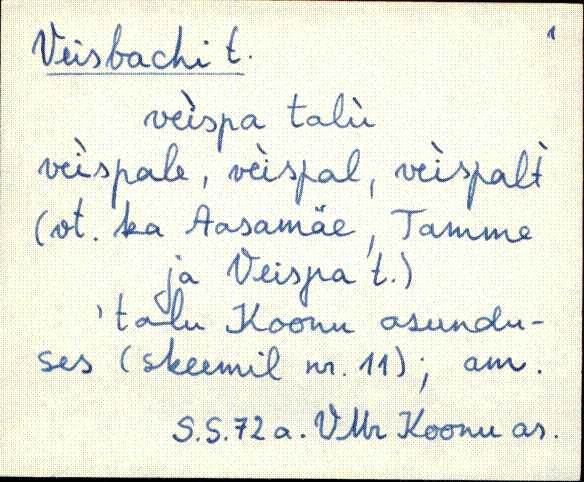 Veisbachi t. 1
vèispa talù
vèispale, vèispal, vèispalt̀
(vt. ka Aasamäe, Tamme
ja Veispa t.)
'talu Koonu asundu-
ses (skeemil nr. 11); am.
S.S. 72 a. VMr Koonu as.